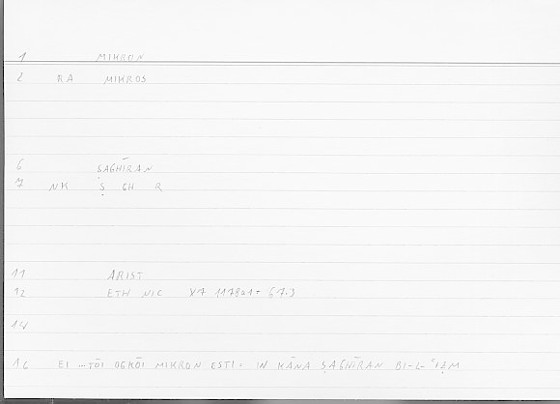 1 MIKRON
2 RA MIKROS
6 ṢAGHĪRAN
7 NK Ṣ GH R
11 ARIST
12 ETH NIC
14
16 EI ...TŌI OGKŌI MIKRON ESTI = IN KĀNA ṢAGHĪRAN BI-L-